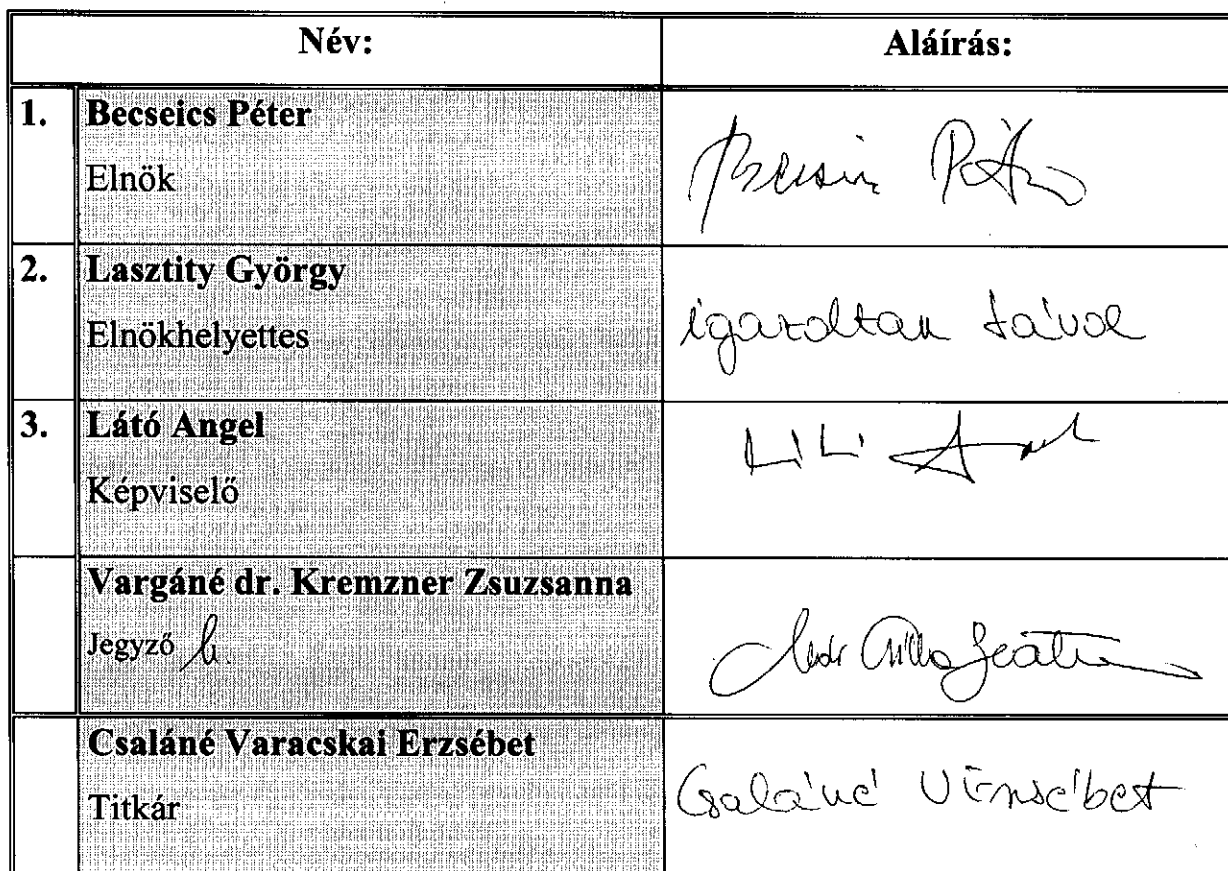 Név: Aláírás:
1. Becseics Péter
Elnök
2. Lasztity György
Elnökhelyettes
igazoltan távol
3. Látó Angel
Képviselő
Vargáné dr. Kremzner Zsuzsanna
Jegyző h.
Csaláné Varacskai Erzsébet
Titkár
Csaláné V Erzsébet